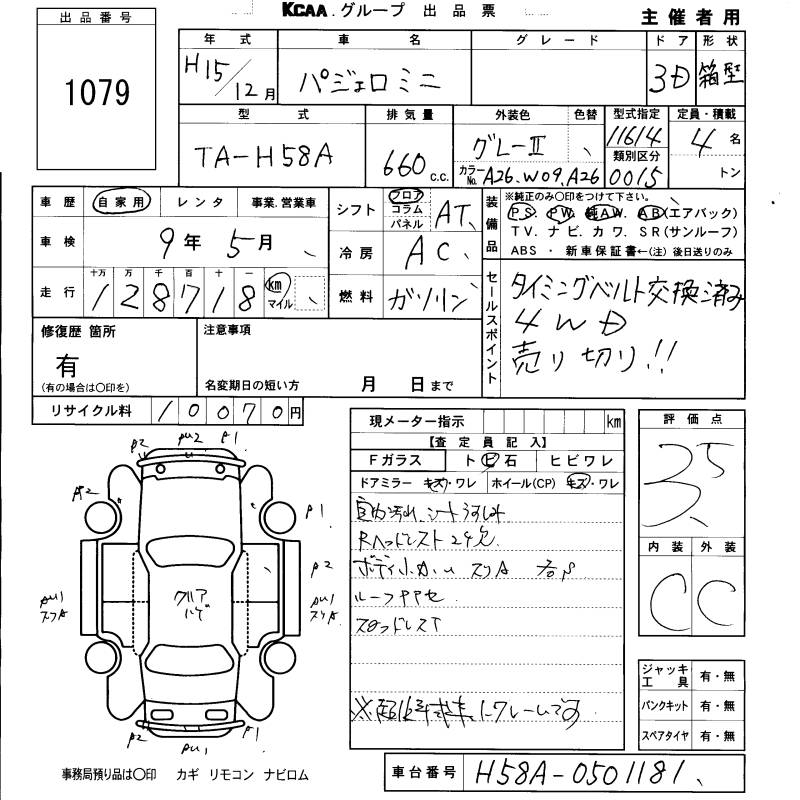 KCAA.グループ 出品票
主催者用
出品番号
1079
年式 車名 グレード ドア 形状
H15/12月 パジェロミニ 3D 箱型
型式 排気量 外装色 色替 型式指定 定員・積載
TA-H58A 660c.c. グレーII 11614 4名
類別区分
カラーNo. A26.W09.A26 0015 トン
車歴 自家用 レンタ 事業.営業車
車検 9年5月
走行 十万 万 千 百 十 一
128718 km マイル
シフト フロア コラム パネル AT
冷房 AC
燃料 ガソリン
装備品
※純正のみ〇印をつけて下さい。
PS. PW. 純AW. AB(エアバック)
TV. ナビ. カワ. SR(サンルーフ)
ABS ・ 新車保証書←(注)後日送りのみ
セールスポイント
タイミングベルト交換済み
4WD
売り切り!!
修復歴 箇所
有
(有の場合は〇印を)
注意事項
名変期日の短い方 月 日まで
リサイクル料 10070円
現メーター指示 km
【査定員記入】
Fガラス トビ石 ヒビワレ
ドアミラー キズ・ワレ ホイール(CP) キズ・ワレ
ボディ小
スリA
ルーフ
評価点
3.5
内装 外装
C C
ジャッキ工具 有・無
パンクキット 有・無
スペアタイヤ 有・無
P2 PU2 P1
P1
P2
クリア
ハゲ
P2 PU1 P1
事務局預り品は〇印 カギ リモコン ナビロム
車台番号 H58A-0501181